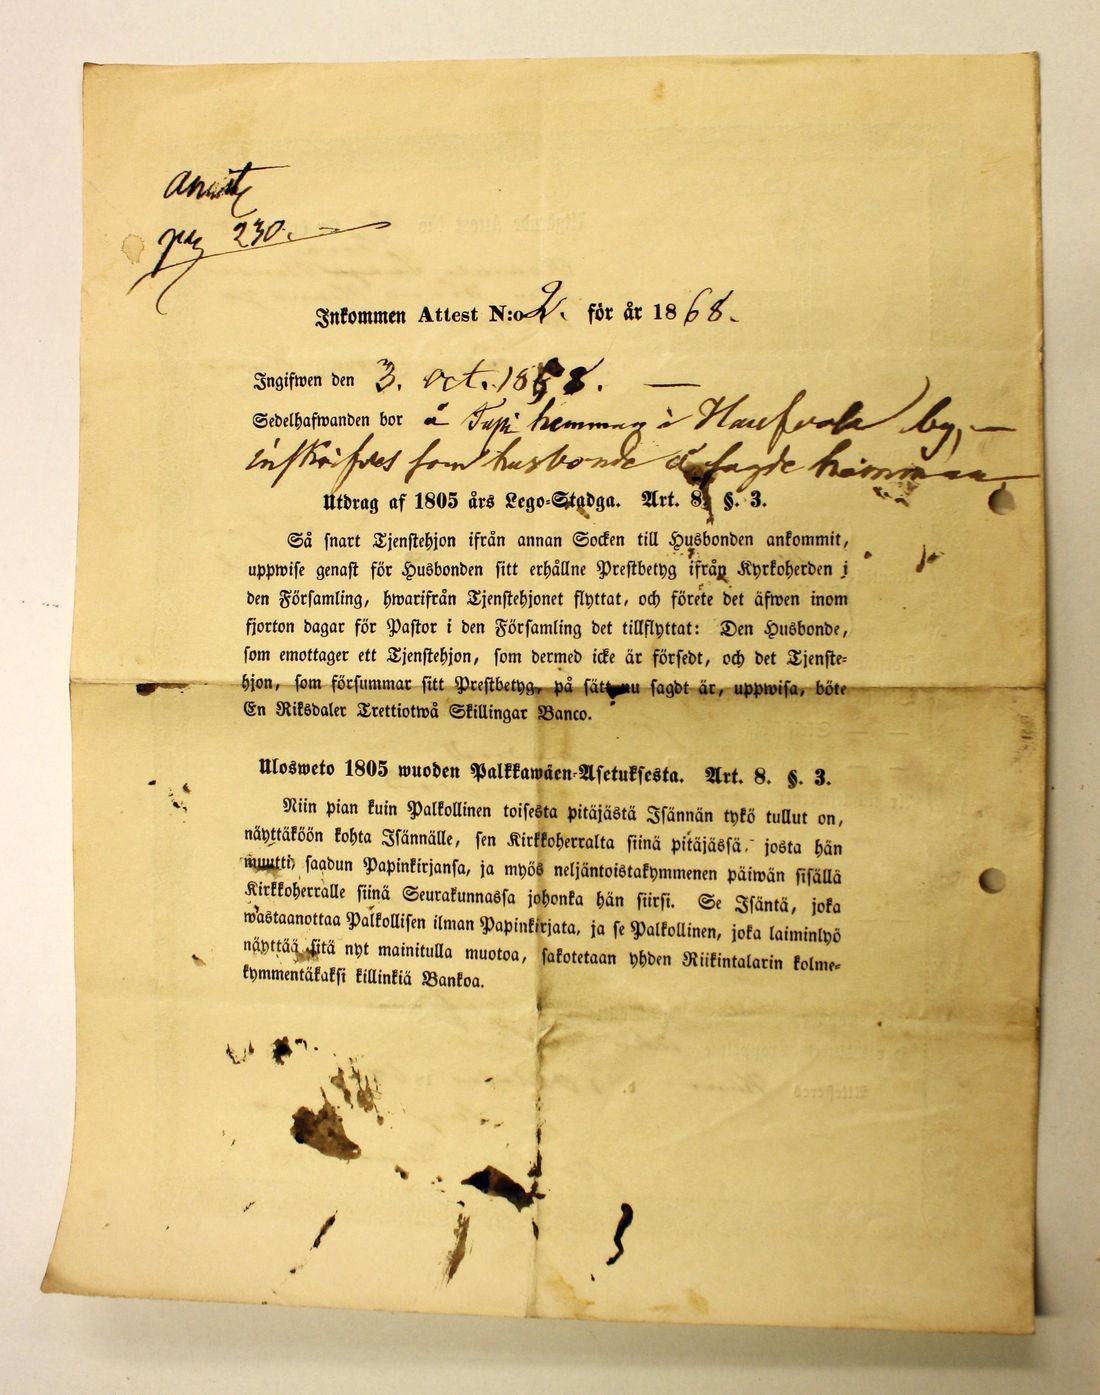 pag 230.
Inkommen Attest N:o 2. för år 1868.
Ingifwen den 3. oct. 1868. —
Sedelhafwanden bor å Tupi hemman i by, —
inskrifves som husbonde å sagde hemman
Utdrag af 1805 års Lego-Stadga. Art. 8. §. 3.
Så snart Tjenstehjon ifrån annan Socken till Husbonden ankommit,
uppwise genast för Husbonden sitt erhållne Prestbetyg ifrån Kyrkoherden i
den Församling, hwarifrån Tjenstehjonet flyttat, och förete det äfwen inom
fjorton dagar för Pastor i den Församling det tillflyttat: Den Husbonde,
som emottager ett Tjenstehjon, som dermed icke är försedt, och det Tjenste-
hjon, som försummar sitt Prestbetyg, på sätt nu sagdt är, uppwisa, böte
En Riksdaler Trettiotwå Skillingar Banco.
Ulosweto 1805 wuoden Palkkawäen-Asetuksesta. Art. 8. §. 3.
Niin pian kuin Palkollinen toisesta pitäjästä Isännän tykö tullut on,
näyttäköön kohta Isännälle, sen Kirkkoherralta siinä pitäjässä, josta hän
muutti, saadun Papinkirjansa, ja myös neljäntoistakymmenen päiwän sisällä
Kirkkoherralle siinä Seurakunnassa johonka hän siirsi. Se Isäntä, joka
wastaanottaa Palkollisen ilman Papinkirjata, ja se Palkollinen, joka laiminlyö
näyttää sitä nyt mainitulla muotoa, sakotetaan yhden Riikintalarin kolme-
kymmentäkaksi killinkiä Bankoa.